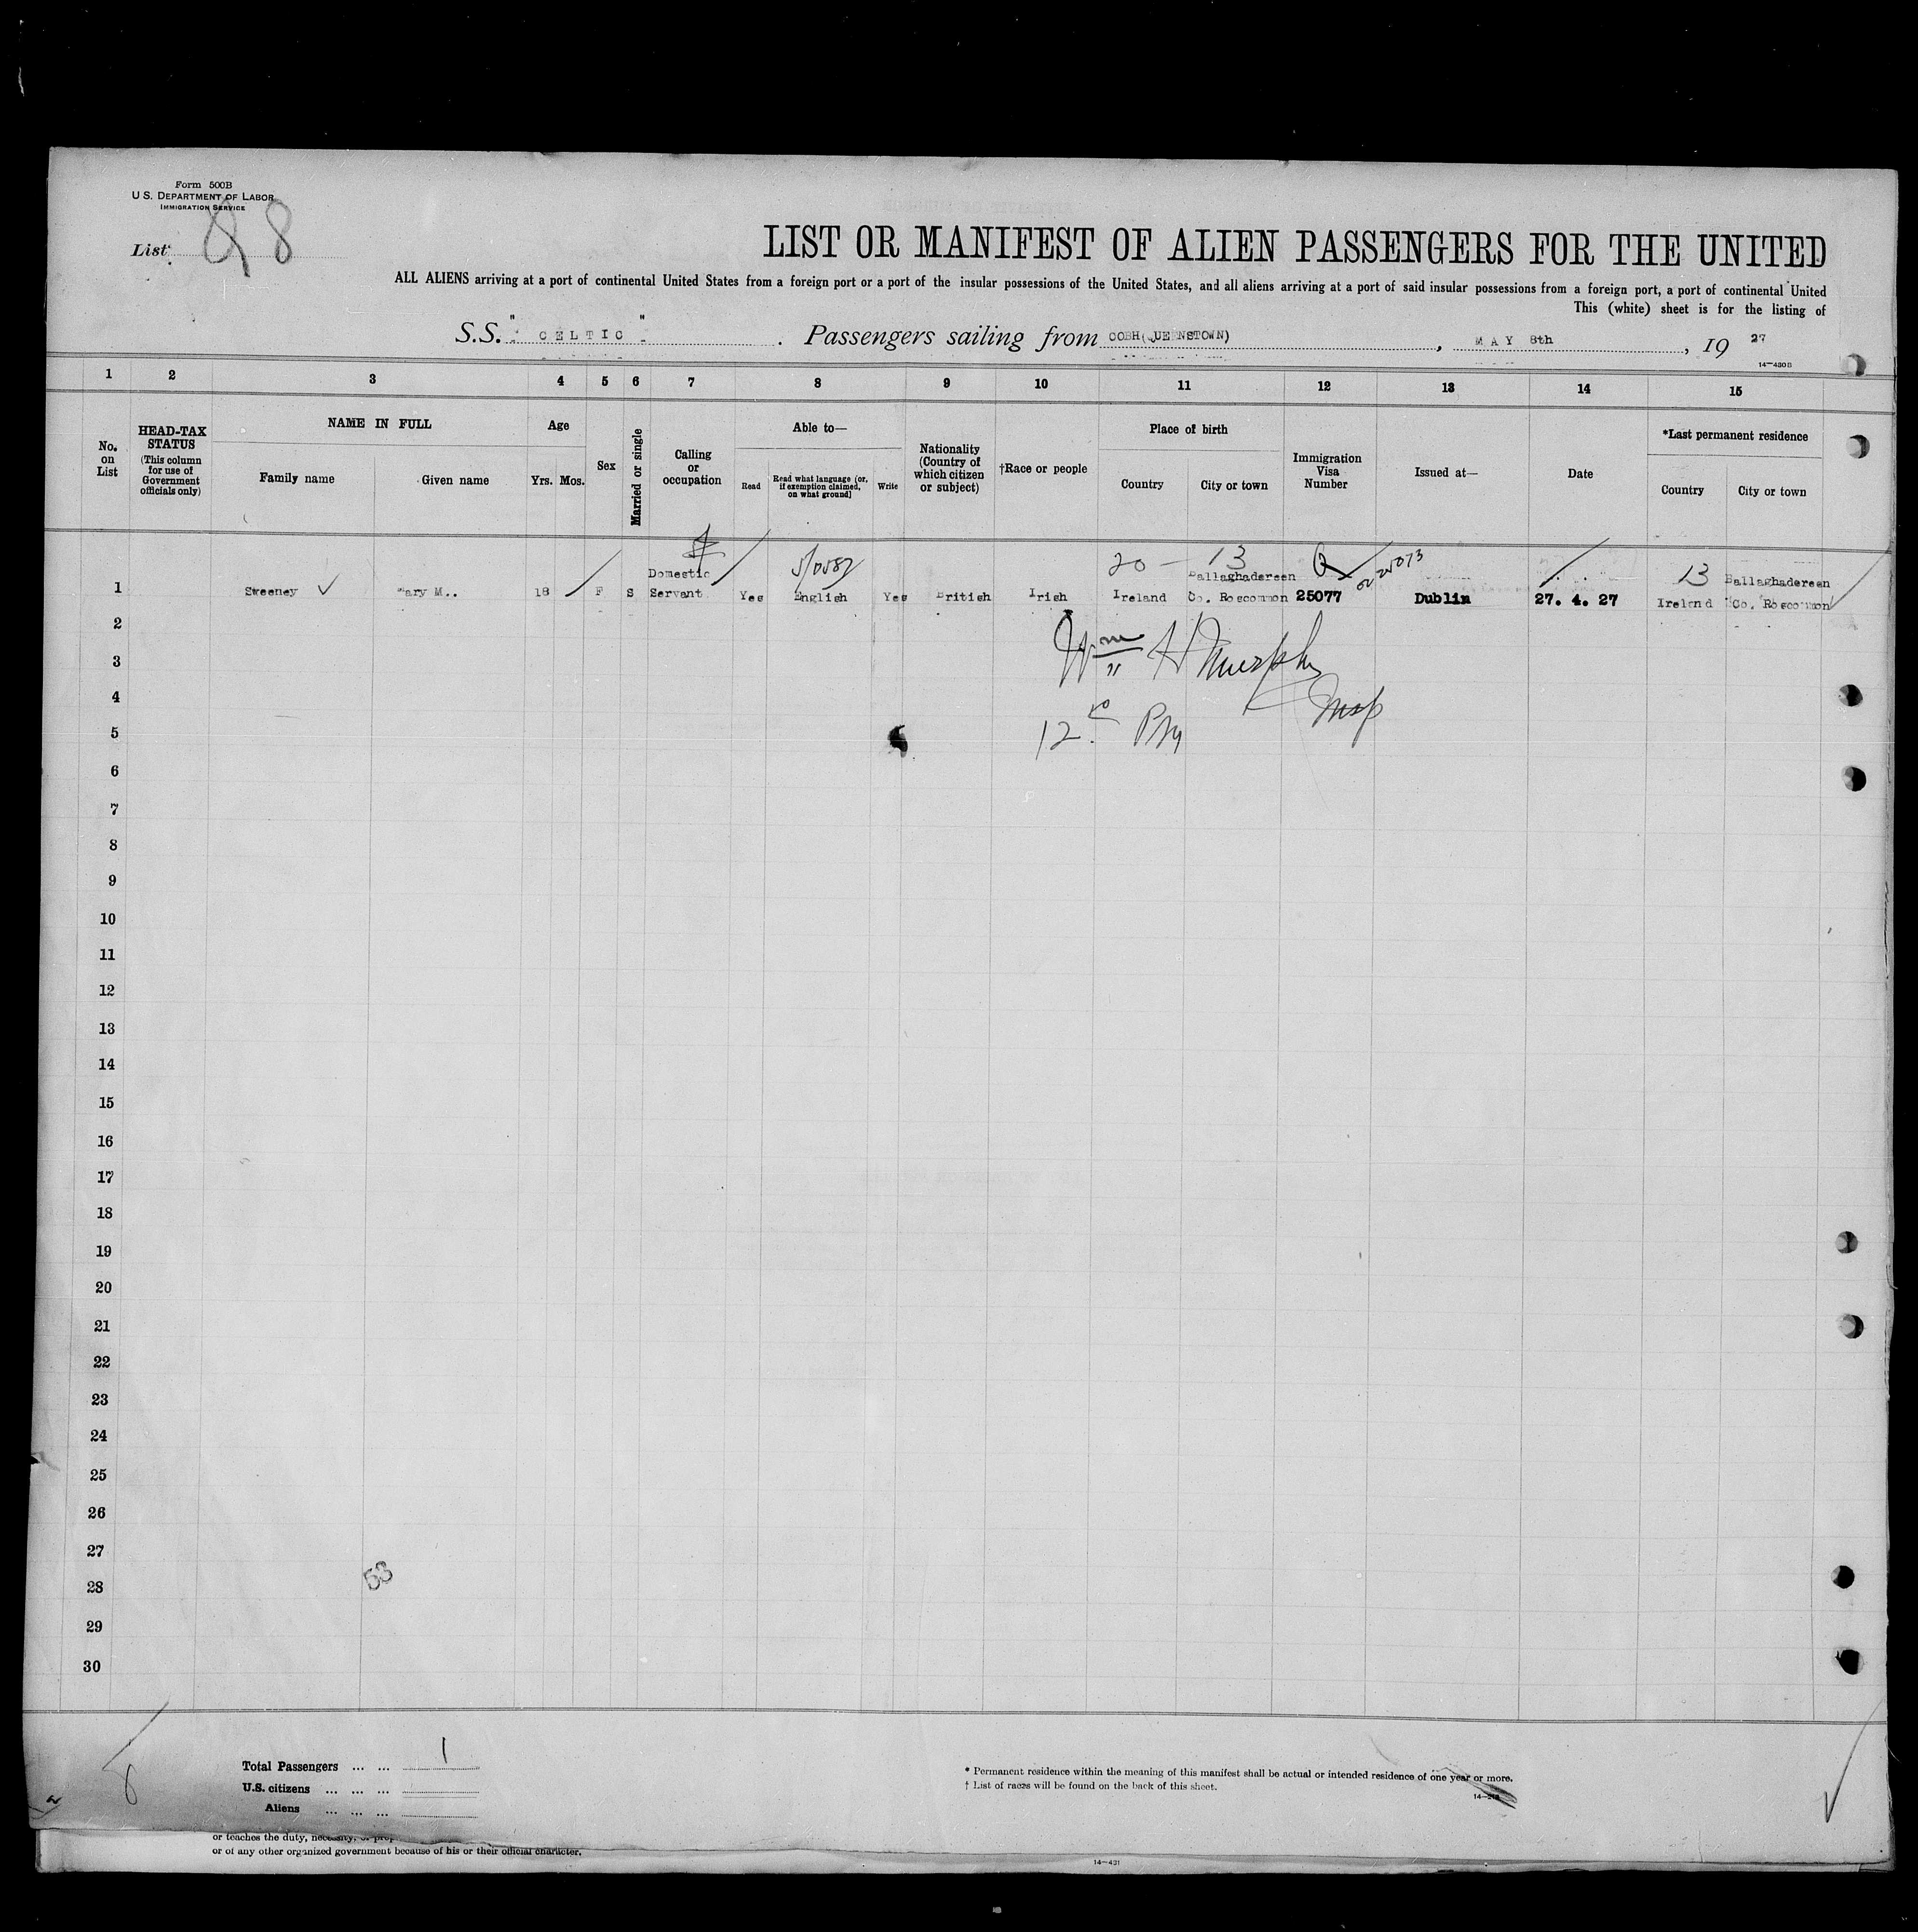 Form 500B
U S. DEPARTMENT OF LABOR
IMMIGRATION SERVICE
List 88
LIST OR MANIFEST OF ALIEN PASSENGERS FOR THE UNITED
ALL ALIENS arriving at a port of continental United States from a foreign port or a port of the insular possessions of the United States, and all aliens arriving at a port of said insular possessions from a foreign port, a port of continental United
This (white) sheet is for the listing of
S.S. " CELTIC " . Passengers sailing from COBH( UE NSTOWN) , MAY 8th , 19 27
14—430B
1 2 3 4 5 6 7 8 9 10 11 12 13 14 15
No. on List
HEAD-TAX STATUS (This column for use of Government officials only)
NAME IN FULL
Family name Given name
Age
Yrs. Mos.
Sex
Married or single
Calling or occupation
Able to—
Read
Read what language [or, if exemption claimed, on what ground]
Write
Nationality (Country of which citizen or subject)
†Race or people
Place of birth
Country City or town
Immigration Visa Number
Issued at—
Date
*Last permanent residence
Country City or town
20 – 13 Q 13
Domestic Ballaghadereen Ballaghadereen
1 Sweeney ✓ Mary M.. 18 F S Servant Yes English Yes British Irish Ireland Co. Roscommon 25077 Dublin 27. 4. 27 Ireland Co. Roscommon
2
Wm H Murphy
3
4
Insp
5
12 PM
6
7
8
9
10
11
12
13
14
15
16
17
18
19
20
21
22
23
24
25
26
27
53
28
29
30
Total Passengers ... ... 1
U.S. citizens ... ... ...
Aliens ... ... ...
* Permanent residence within the meaning of this manifest shall be actual or intended residence of one year or more.
† List of races will be found on the back of this sheet.
or teaches the duty, necessity, or
or of any other organized government because of his or their official character.
14—431